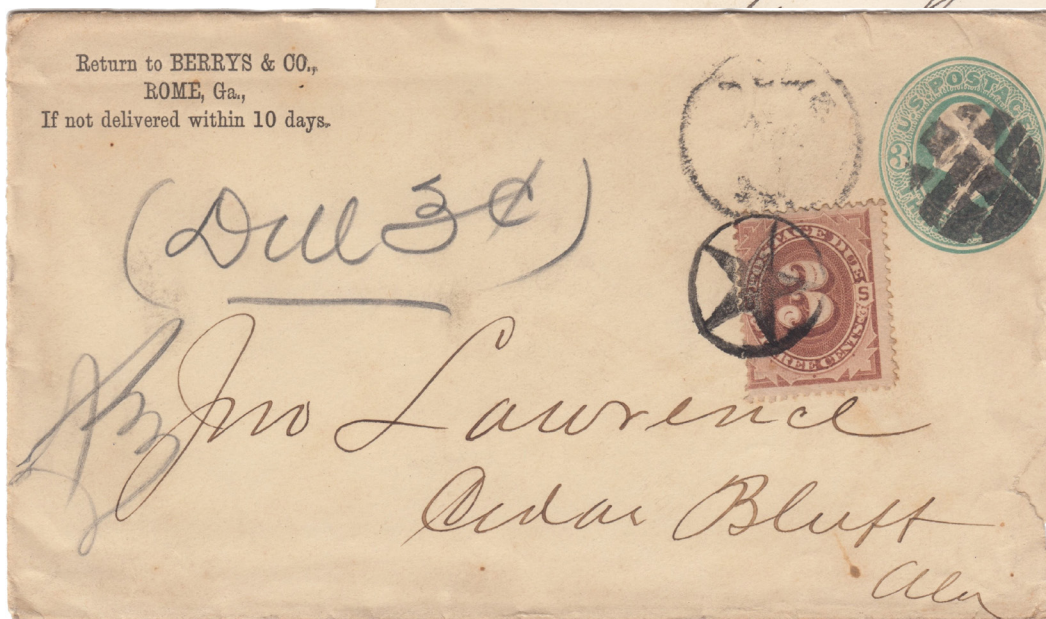 Return to BERRYS & CO.,
ROME, Ga.,
If not delivered within 10 days.
U.S. POSTAGE
3
(Due 3¢)
POSTAGE DUE
3
THREE CENTS
U S
Jno Lawrence
Cedar Bluff
Ala